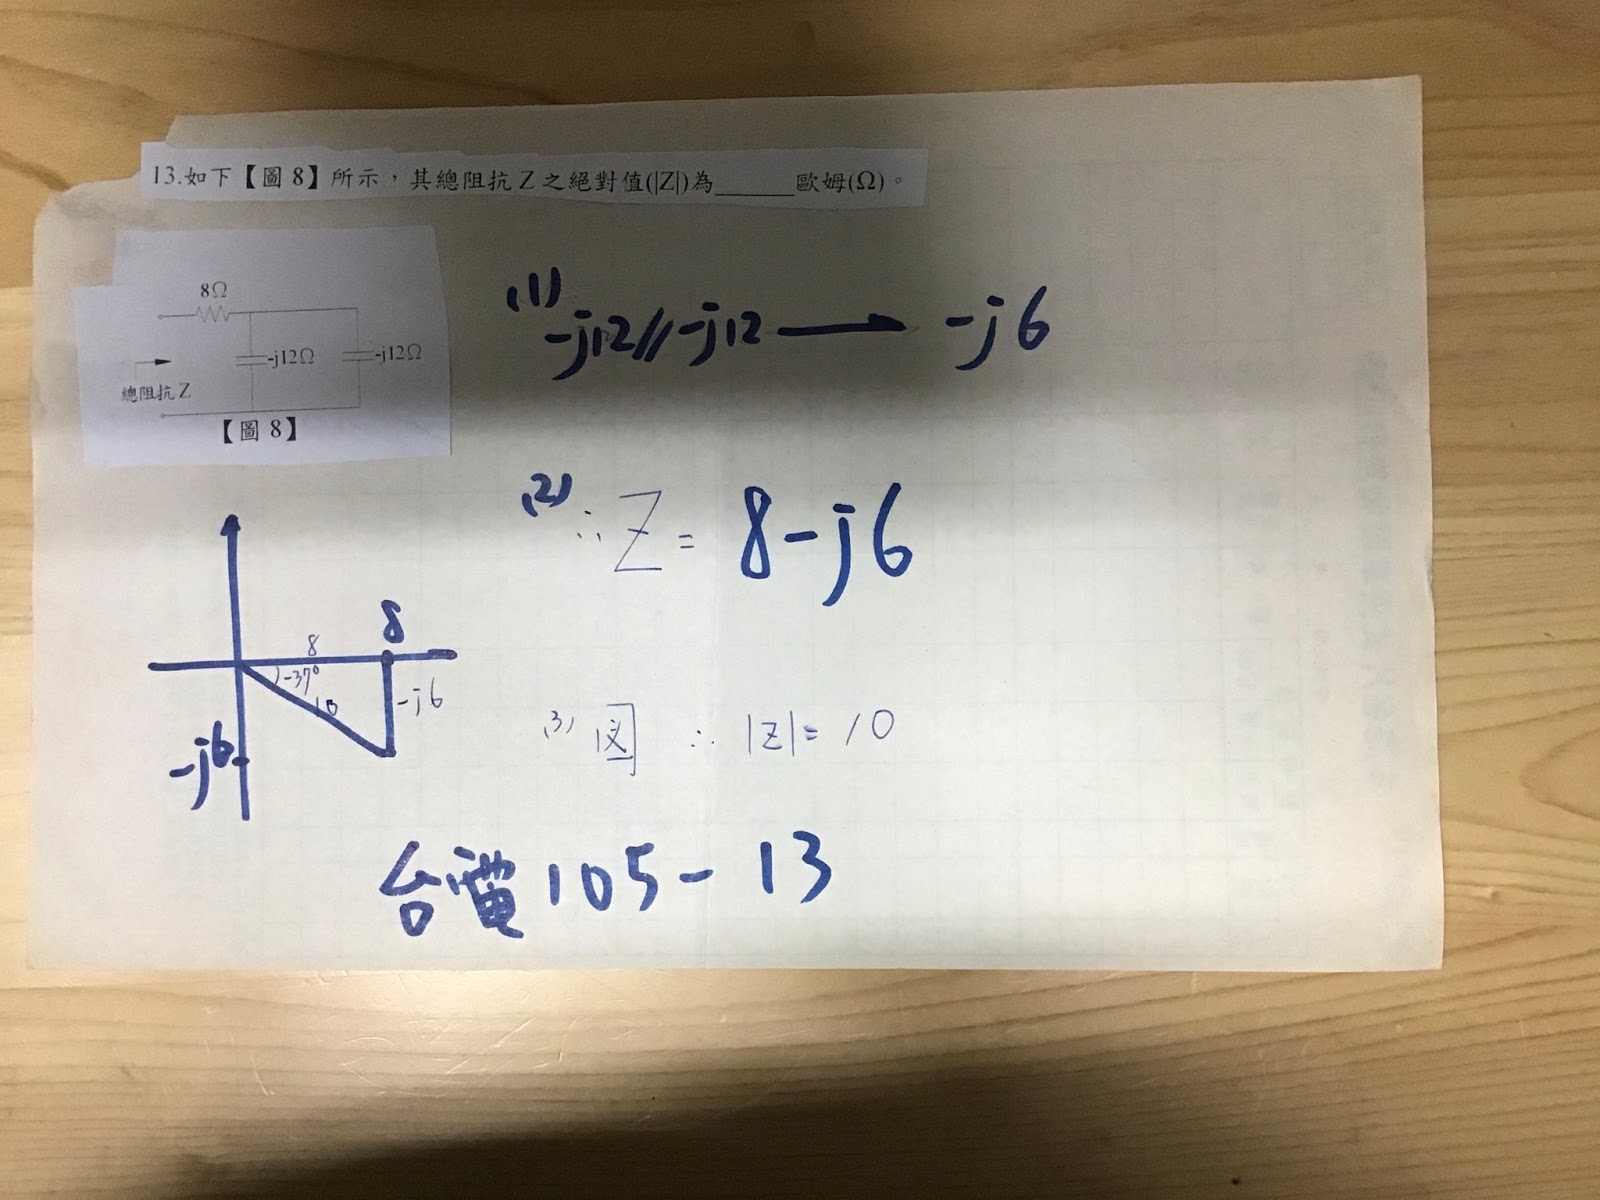 13.如下【圖 8】所示，其總阻抗 Z 之絕對值(|Z|)為______歐姆(Ω)。
8Ω
-j12Ω
-j12Ω
總阻抗 Z
【圖 8】
(1)
-j12//-j12 → -j6
(2) ∴ Z = 8-j6
8
8
-37°
10
-j6
-j6
(3) 図 ∴ |Z|= 10
台電 105-13